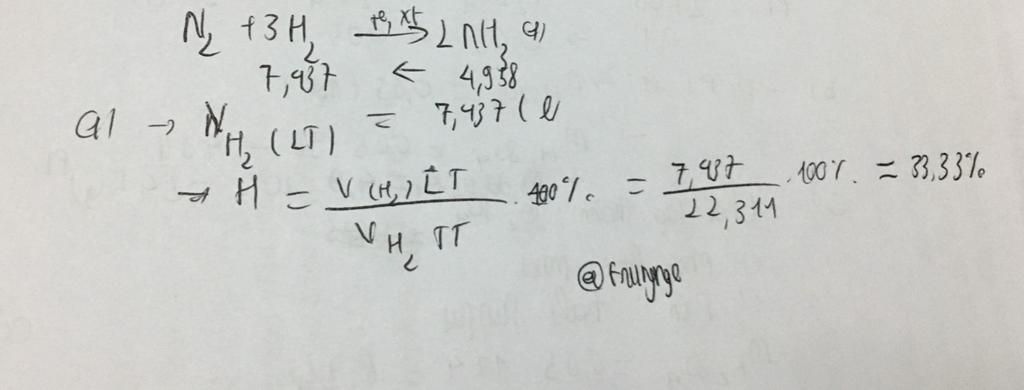 N₂ + 3H₂ →(t°, xt) 2NH₃ (1)
7,437 ← 4,958
(1) → V H₂ (LT) = 7,437 (l)
→ H = V(H₂) LT / V H₂ TT . 100% = 7,437 / 22,311 . 100% = 33,33%